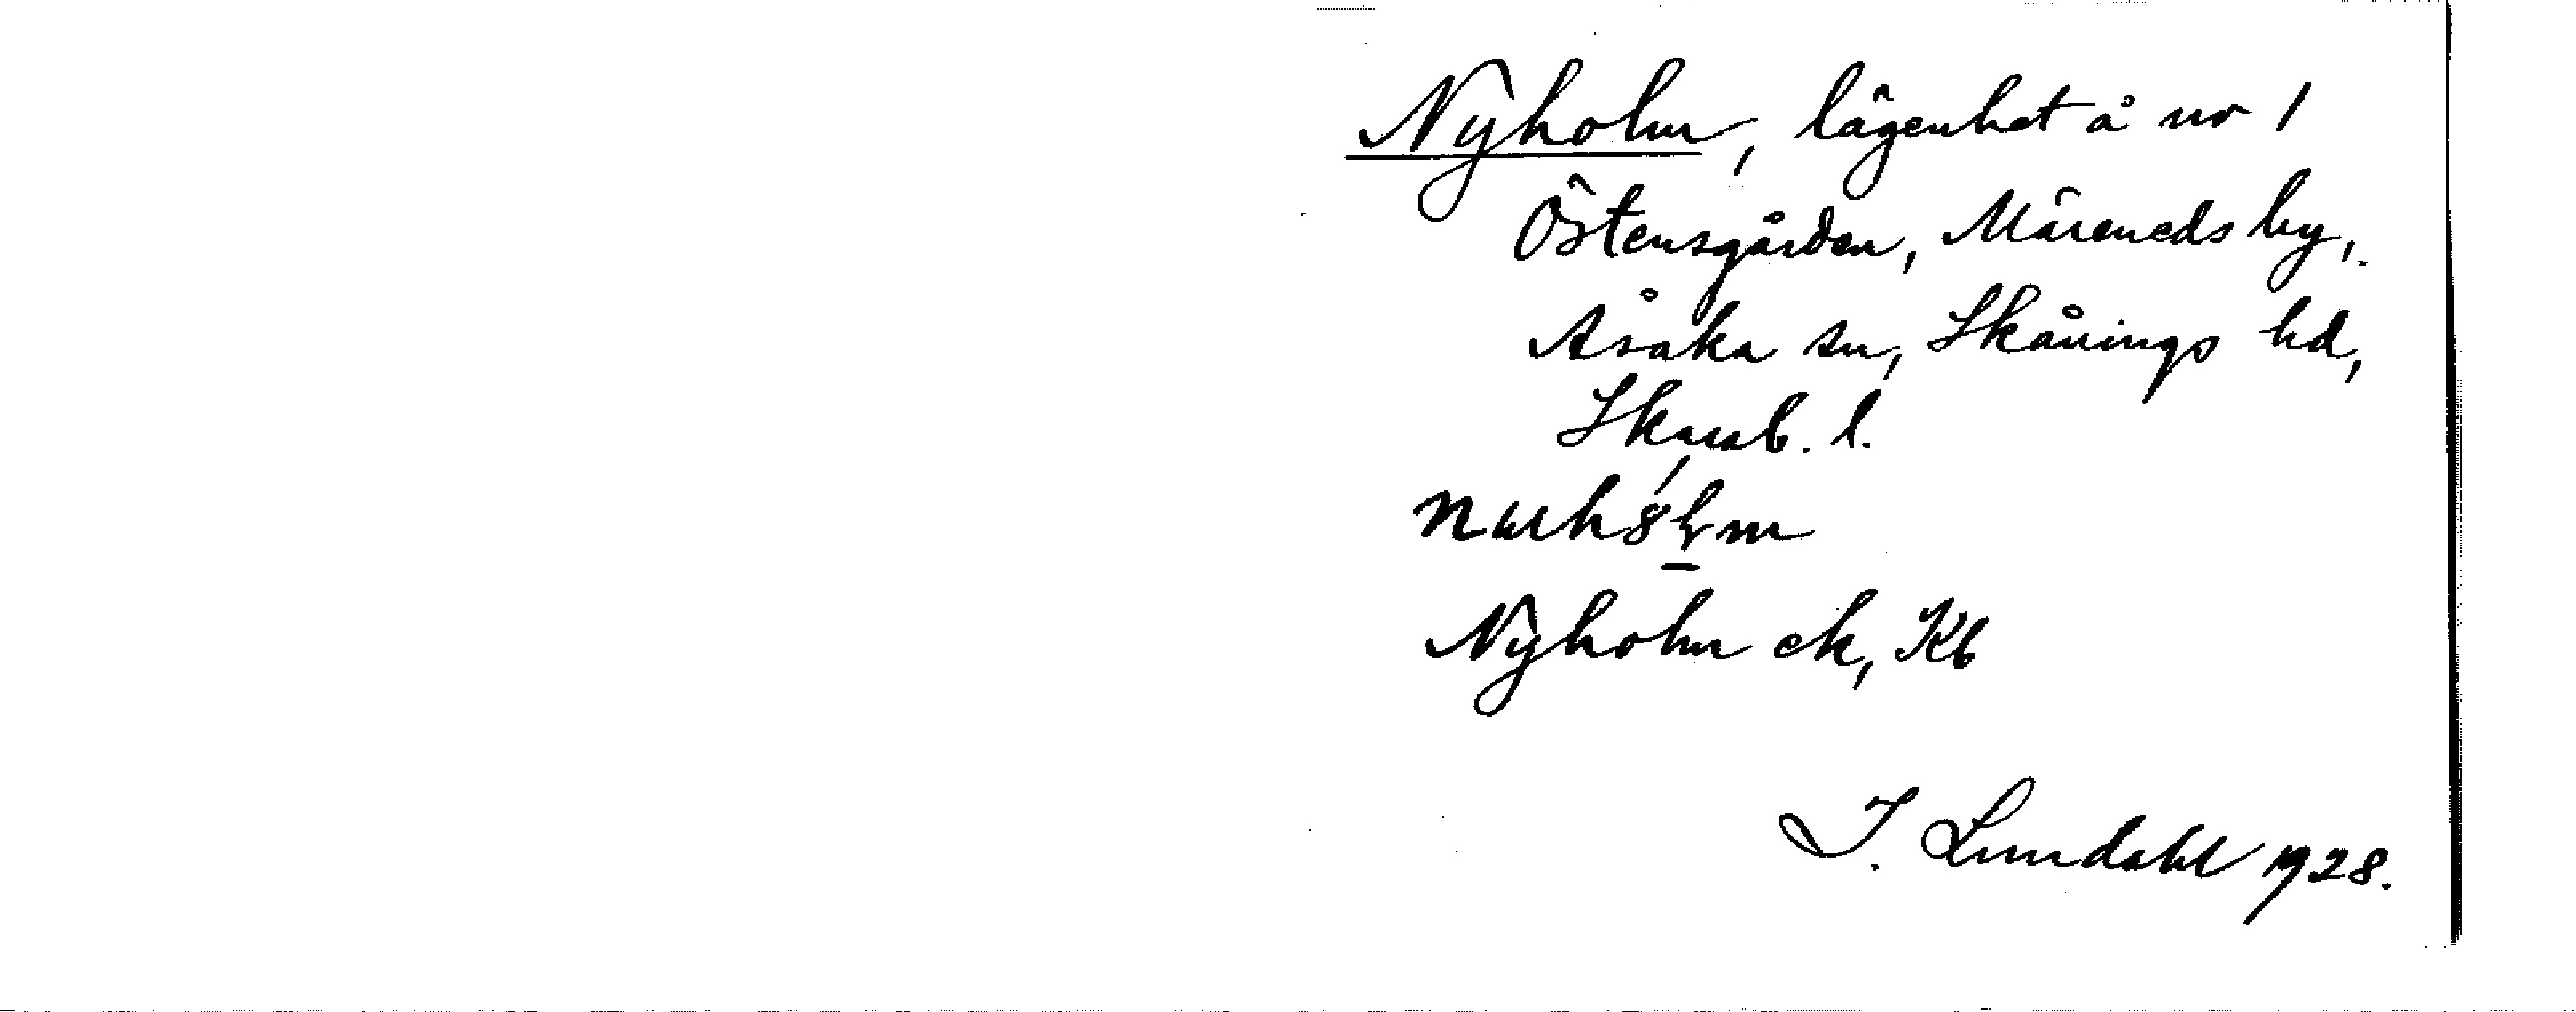 Nyholm, lägenhet å nr 1
Östensgården, Märeneds by,
Åsaka sn, Skånings hd,
Skarab. l.
Nyholm ek, Kb
I. Lundahl 1928.